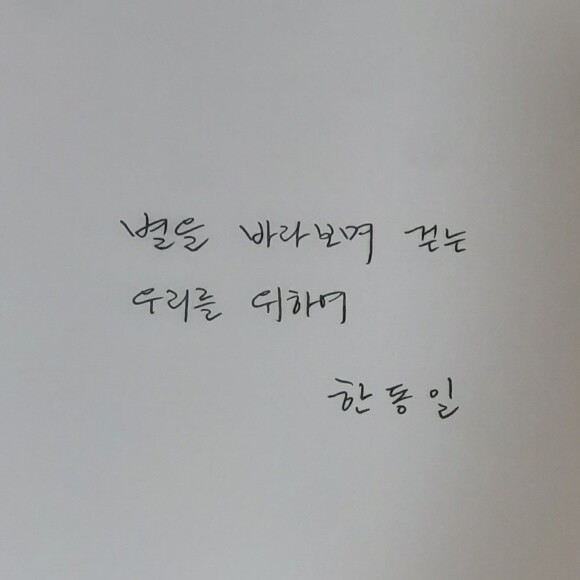 별을 바라보며 걷는
우리를 위하여
한동일